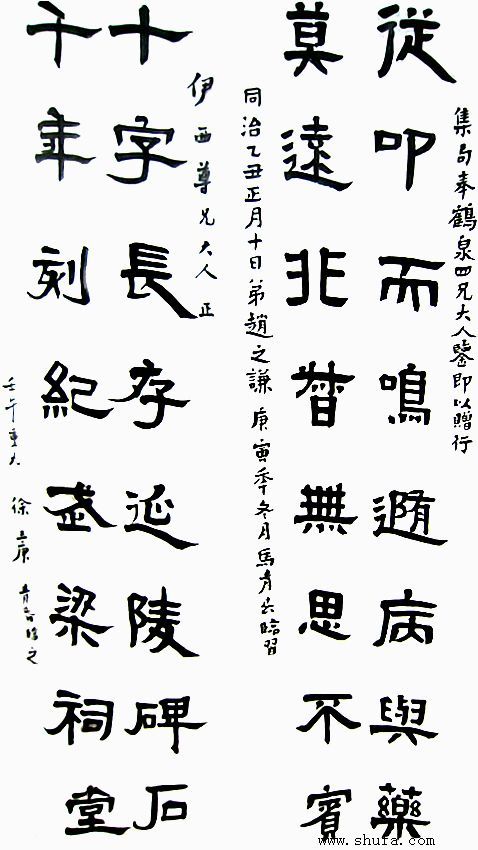 集句奉鶴泉四兄大人鑒即以贈行
從叩而鳴遀病與藥
莫遠非督無思不賓
同治乙丑正月十日弟趙之謙 庚寅季冬月馬青云臨習
伊西尊兄大人正
十字長存延陵碑石
千年刻紀武梁祠堂
壬午重九 徐三庚 臨之
www.shufa.com